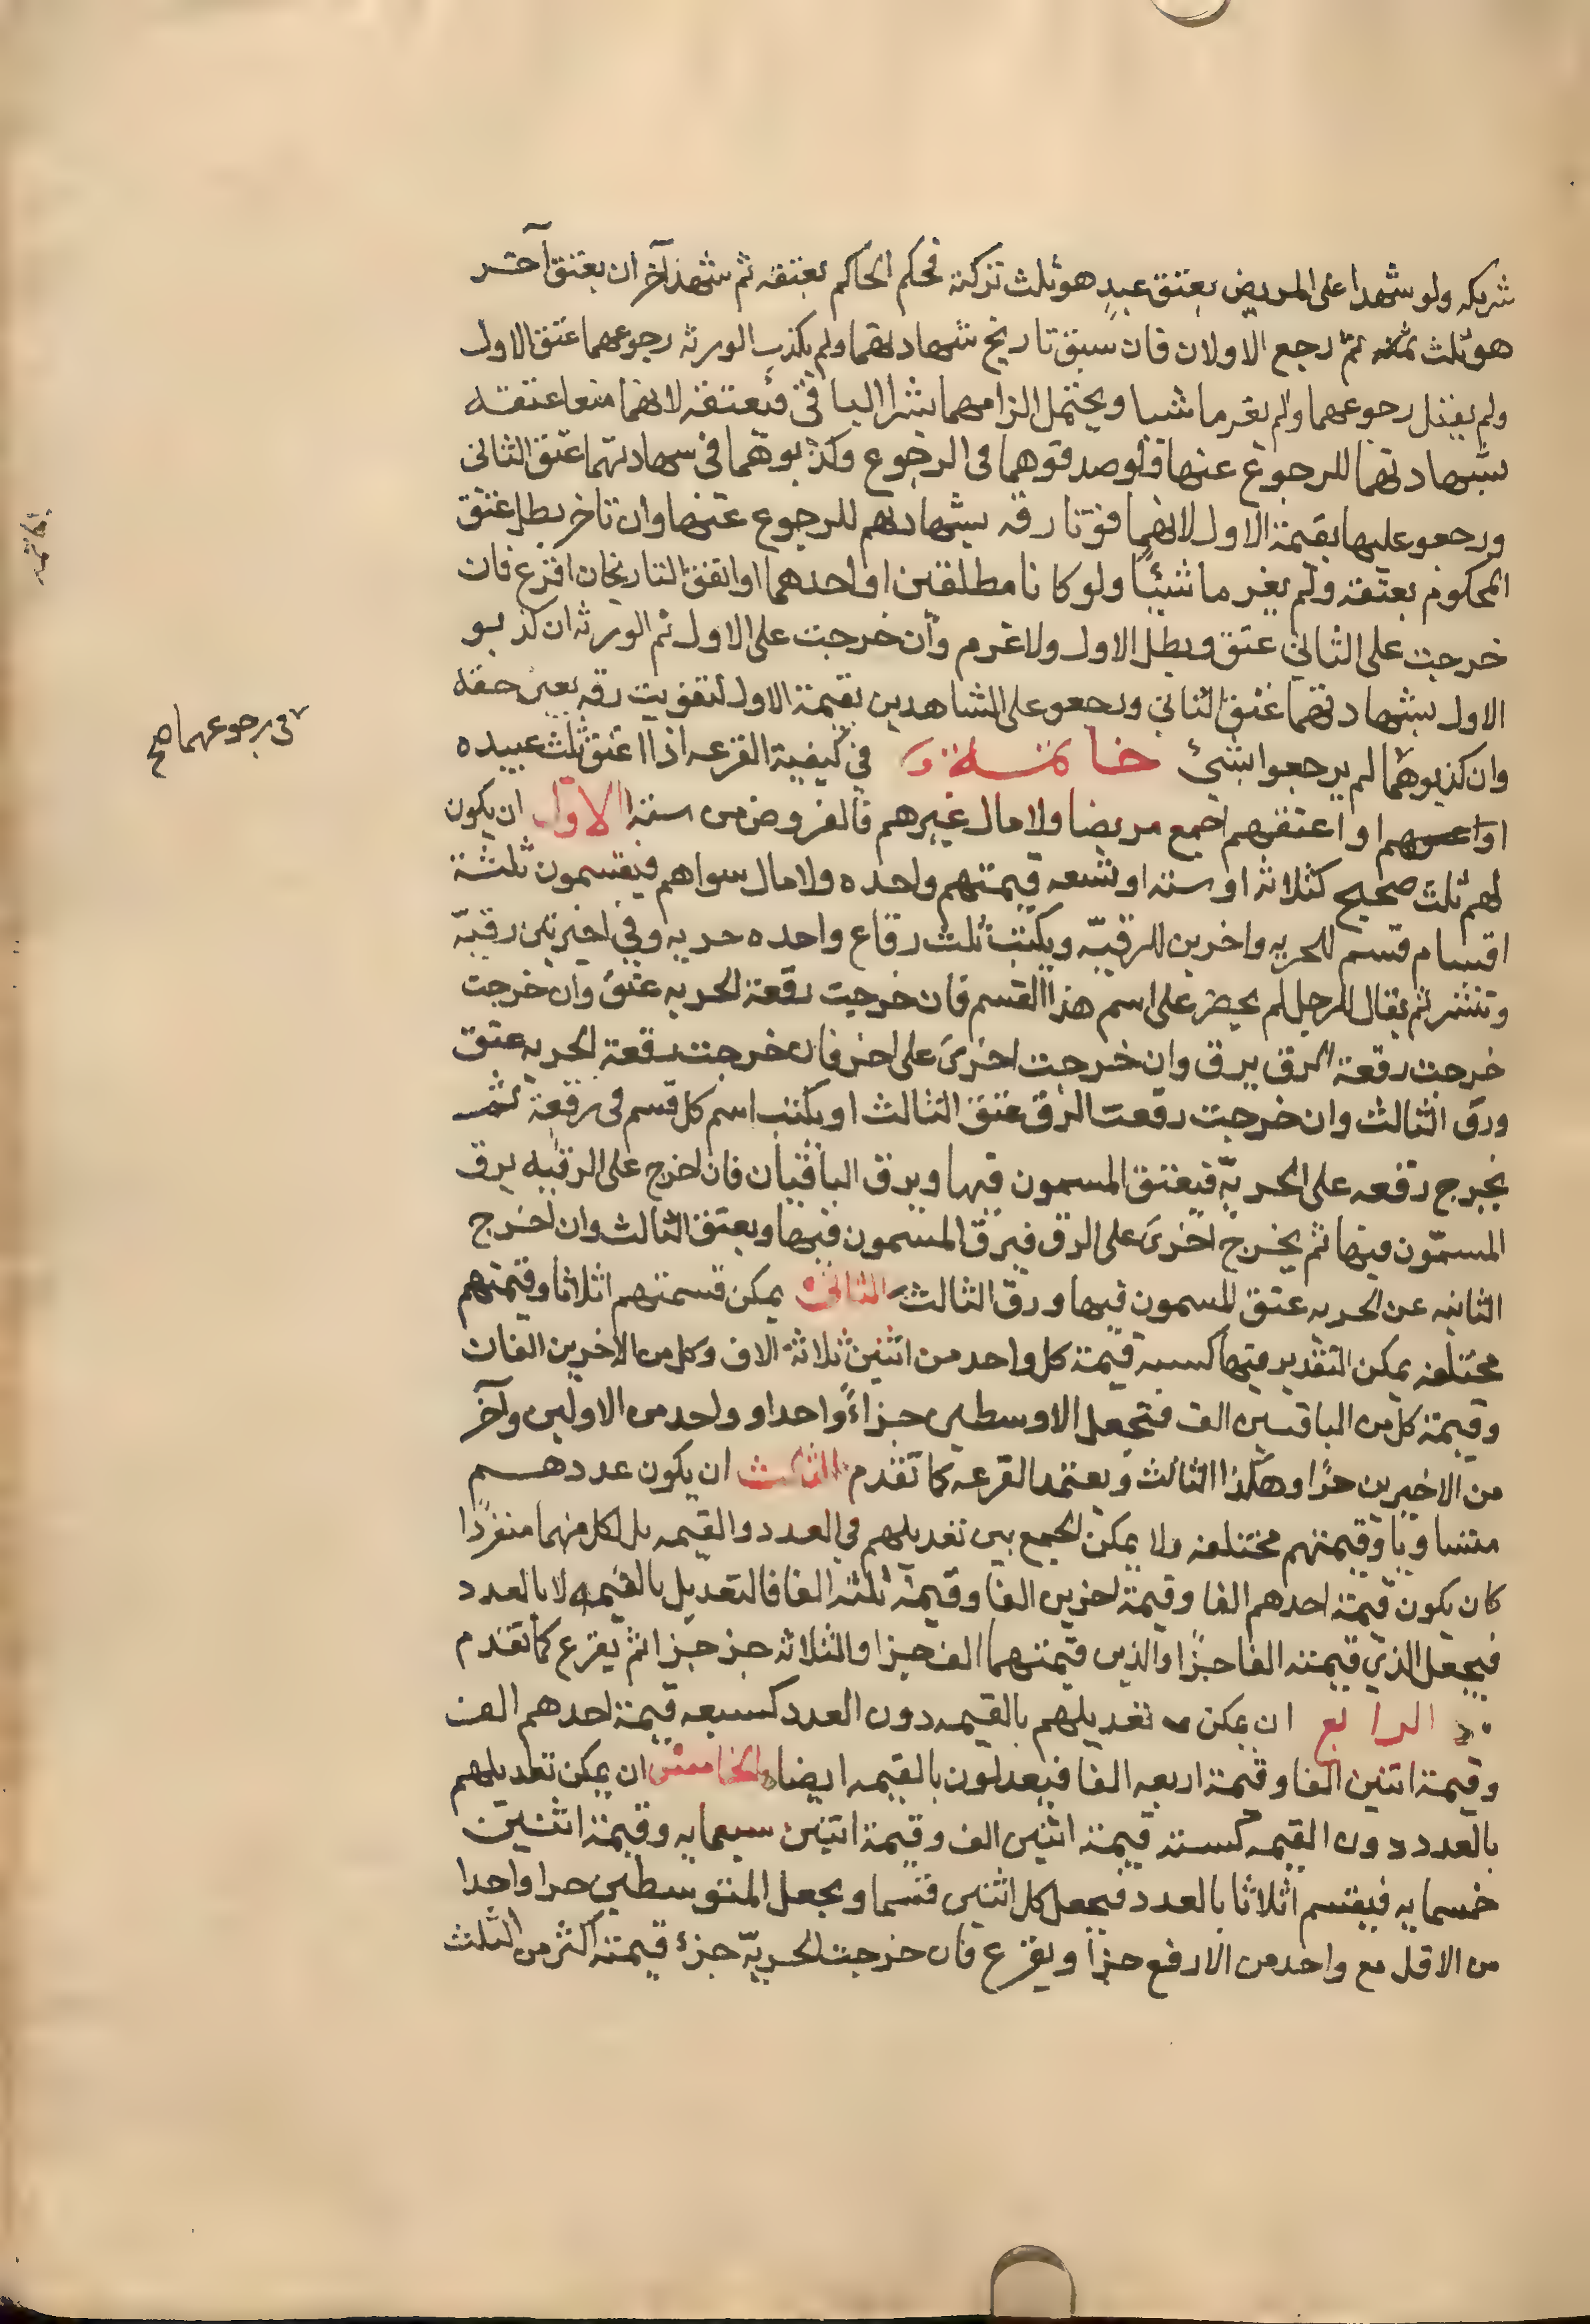 شريكه ولو شهدا على المريض بعتق عبدٍ هو ثلث تركته فحكم الحاكم بعتقه ثم شهد آخران بعتق آخر
هو ثلث ثم رجع الاولان فان سبق تاريخ شهادتهما ولم يكذب الورثه رجوعهما عتق الاول
ولم يقبل رجوعهما ولم يغرما شيا ويحتمل الزامهما بشرا الباقى فيعتقه لانهما منعا عتقه
بشهادتهما للرجوع عنها ولو صدقوهما فى الرجوع وكذبوهما فى شهادتهما عتق الثانى
ورجعو عليها بقيمة الاول لانهما فوتا رقه بشهادتهم للرجوع عنها وان تاخر بطل عتق
المحكوم بعتقه ولم يغرما شيئًا ولو كانا مطلقتين او احدهما او اتفق التاريخان اقرع فان
خرجت على الثاني عتق وبطل الاول ولا غرم وان خرجت على الاول ثم الورثه ان كذبو
الاول بشهادتهما عتق الثانى ورجعو على الشاهدين بقيمة الاول لتفويت رقه بغير حقه
في رجوعهما صح
وان كذبوهما لم يرجعوا بشئ خاتمة في كيفية القرعه اذا اعتق ثلث عبيده
او اعتقهم اجمع مريضا ولا مال غيرهم فالفروض ستة الاول ان يكون
لهم ثلث صحيح كثلاثه او سته او تسعه قيمتهم واحده ولا مال سواهم فيقسمون ثلثة
اقسام قسم للحريه واخرين للرقيّه ويكتب ثلث رقاع واحده حريه وفي اخيرتين رقيّه
وتنشر ثم يقال لرجل لم يحضر على اسم هذا القسم فان خرجت رقعة الحريه عتق وان خرجت
خرجت رقعة الرق يرق وان خرجت اخرى على اخر فان خرجت رقعة الحريه عتق
ورق الثالث وان خرجت رقعت الرق عتق الثالث او يكتب اسم كل قسم فى رقعة ثم
يخرج رقعه على الحريّه فيعتق المسمون فيها ويرق الباقيان فان اخرج على الرقيه يرق
المسمّون فيها ثم يخرج اخرى على الرق فيرق المسمون فيها ويعتق الثالث وان اخرج
الثانيه عن الحريه عتق المسمون فيها ورق الثالث الثانى يمكن قسمتهم اثلاثا وقيمتهم
مختلفه يمكن التقدير فيها كسته قيمة كل واحد من اثنين ثلاثة الاف وكل من الاخرين الفان
وقيمة كل من الباقيين الف فتجعل الاوسطين جزاءً واحدا و واحد من الاولين وآخر
من الاخيرين جزًا وهكذا الثالث ويعتمد القرعه كما تقدم الثالث ان يكون عددهم
متساويا وقيمتهم مختلفه ولا يمكن الجمع بين تعديلهم في العدد والقيمه بل لكل منهما منفردًا
كان يكون قيمة احدهم الفا وقيمة اخرين الفا وقيمة ثلثه الفا فالتعديل بالقيمه لا بالعدد
فيجعل الذي قيمته الفا جزًا والذين قيمتهما الف جزا والثلاثه جز جزا ثم يقرع كما تقدم
الرابع ان يمكن تعديلهم بالقيمه دون العدد كسبعه قيمة احدهم الف
وقيمة اثنين الفا وقيمة اربعه الفا فيعدلون بالقيمه ايضا الخامس ان يمكن تعديلهم
بالعدد دون القيمه كستة قيمة اثنين الف وقيمة اثنين سبعمايه وقيمة اثنين
خمسمايه فيقسم اثلاثا بالعدد فيجعل كل اثنين قسما ويجعل المتوسطين جزا واحدا
من الاقل مع واحد من الارفع جزا ويقرع فان خرجت الحريّه جزء قيمته اكثر من الثلث